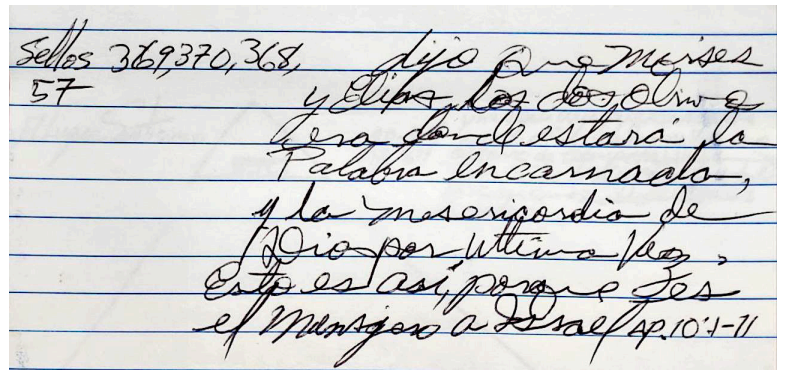 Sellos 369,370,368, dijo que Moises
57 y Elias, los dos olivos
era donde estará la
Palabra encarnada,
y la misericordia de
Dios por ultima vez,
Esto es así, porque es
el Mensajero a Israel AP.10:1-11